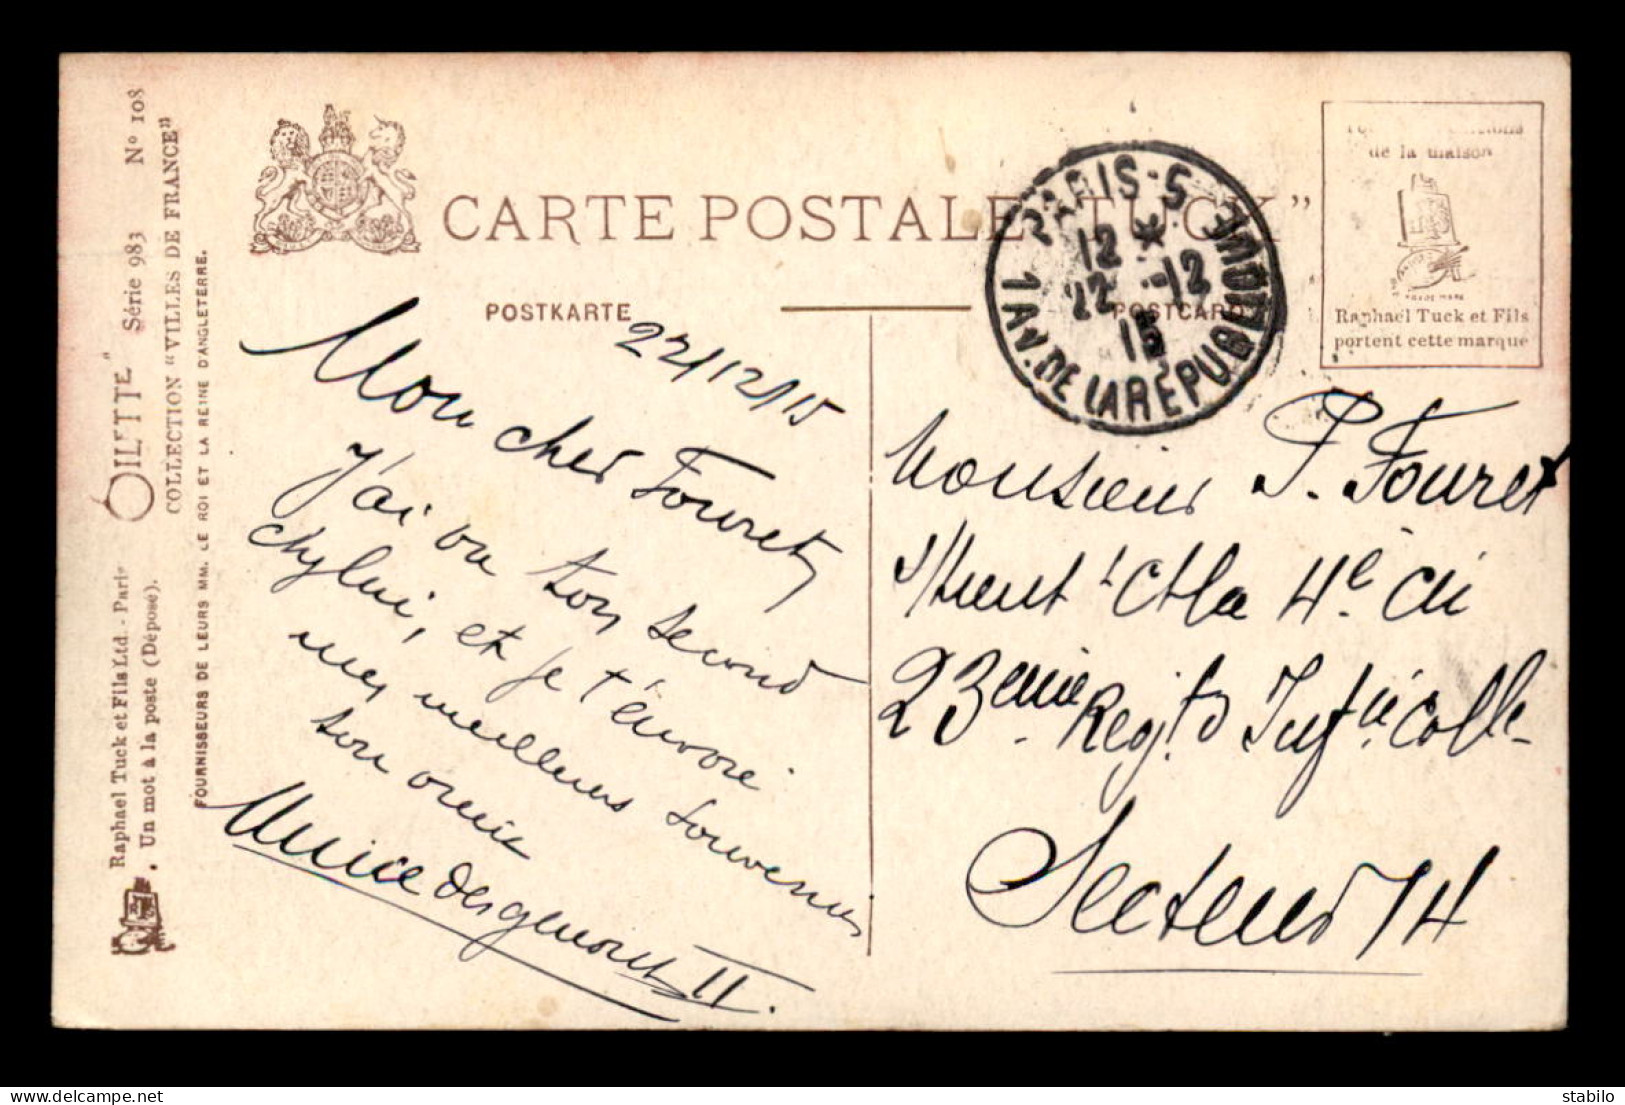 OILETTE" Série 983 N° 108
COLLECTION "VILLES DE FRANCE"
Raphael Tuck et Fils Ltd - Paris
Un mot à la poste (Déposé).
FOURNISSEURS DE LEURS MM. LE ROI ET LA REINE D'ANGLETERRE.
CARTE POSTALE "TUCK"
POSTKARTE
POSTCARD
PARIS-5
12 *
22 -12
15
1 AV. DE LA REPUBLIQUE
de la maison
TRADE MARK
Raphael Tuck et Fils
portent cette marque
22/12/15
Mon cher Fouret
J'ai vu ton second
et je t'envoie
mes meilleurs souvenirs
ton amie
II.
Monsieur P. Fouret
4e Cie
23eme Regt d'Infrie Colle
Secteur 14